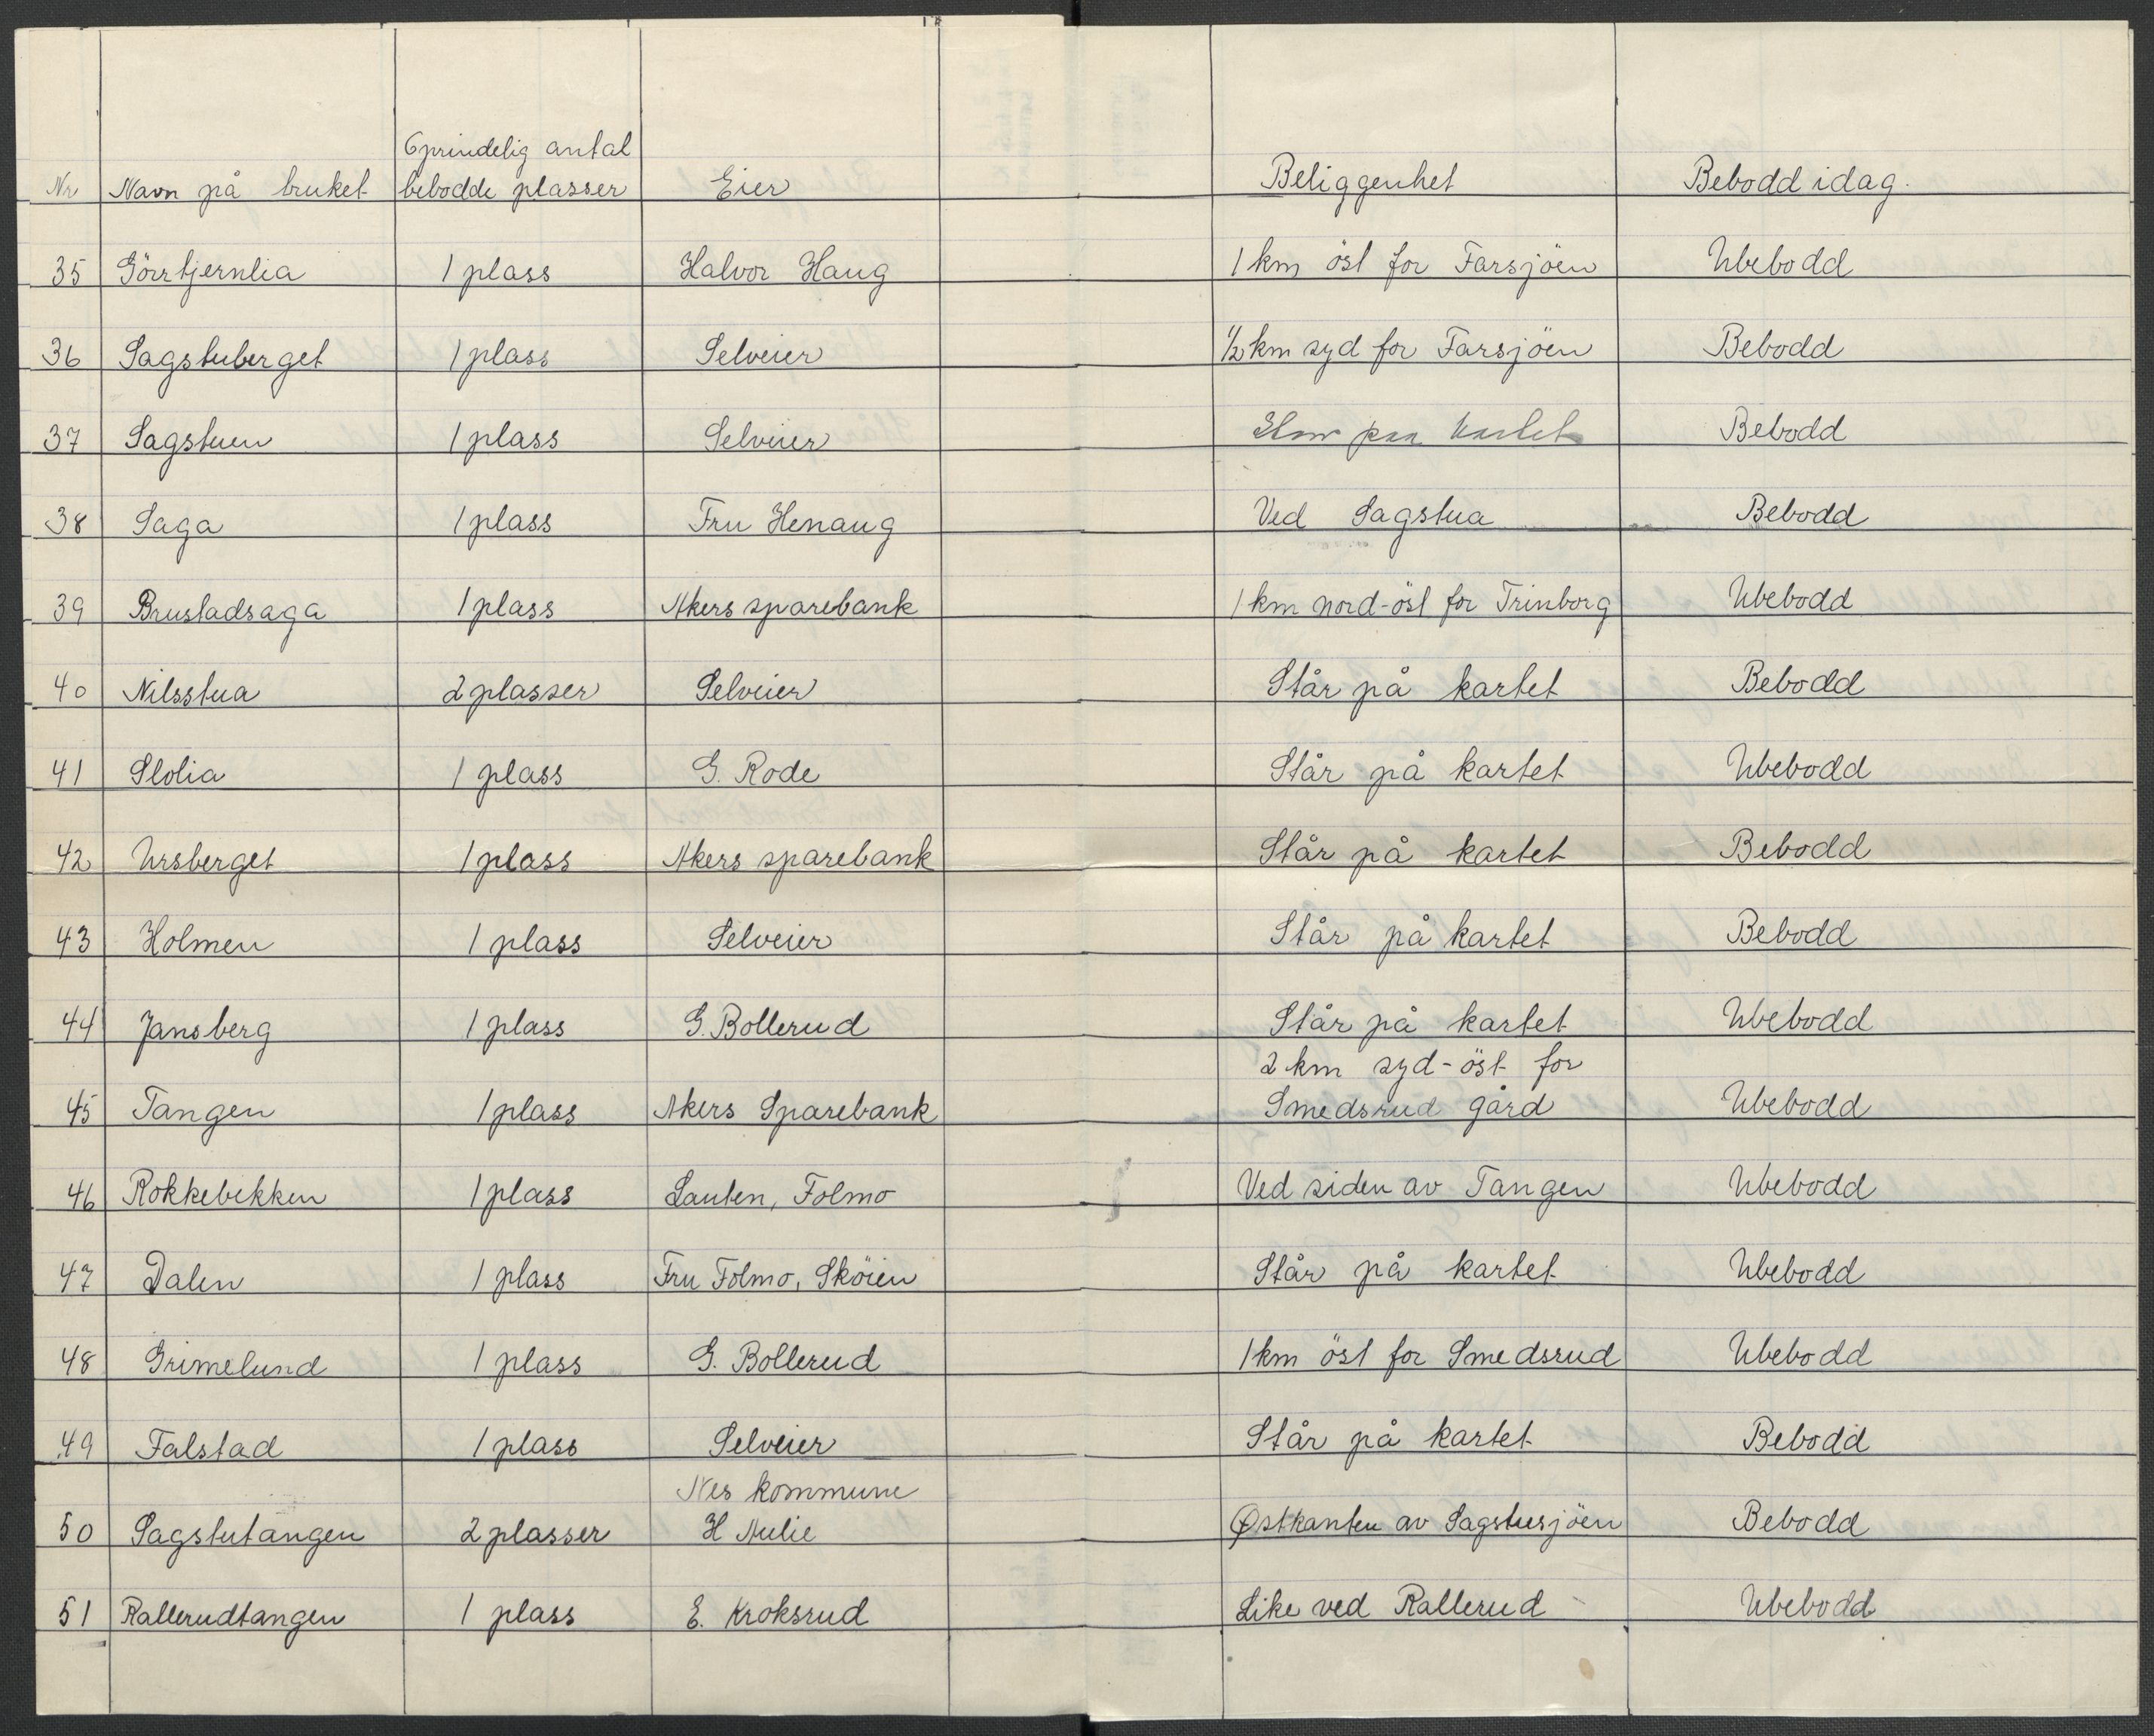 Nr Navn på bruket Oprindelig antal bebodde plasser Eier Beliggenhet Bebodd idag.
35 Görrtjernlia 1 plass Halvor Haug 1 km öst for Farsjöen Ubebodd
36 Sagstuberget 1 plass Selveier 1/2 km syd for Farsjöen Bebodd
37 Sagstuen 1 plass Selveier Staar paa kartet Bebodd
38 Saga 1 plass Fru Henaug Ved Sagstua Bebodd
39 Brustadsaga 1 plass Akers sparebank 1 km nord-öst for Trinborg Ubebodd
40 Nilsstua 2 plasser Selveier Står på kartet Bebodd
41 Stolia 1 plass G. Rode Står på kartet Ubebodd
42 Ursberget 1 plass Akers sparebank Står på kartet Bebodd
43 Holmen 1 plass Selveier Står på kartet Bebodd
44 Jansberg 1 plass G. Bollerud Står på kartet Ubebodd
2 km syd-öst for
45 Tangen 1 plass Akers Sparebank Smedsrud gård Ubebodd
46 Rokkebekken 1 plass Lauten, Folmo Ved siden av Tangen Ubebodd
47 Dalen 1 plass Fru Folmo, Sköien Står på kartet Ubebodd
48 Grimelund 1 plass G. Bollerud 1 km öst for Smedsrud Ubebodd
49 Falstad 1 plass Selveier Står på kartet Bebodd
Nes kommune
50 Sagstutangen 2 plasser H Aulie Østkanten av Sagstusjöen Bebodd
51 Rallerudtangen 1 plass E. Kroksrud Like ved Rallerud Ubebodd